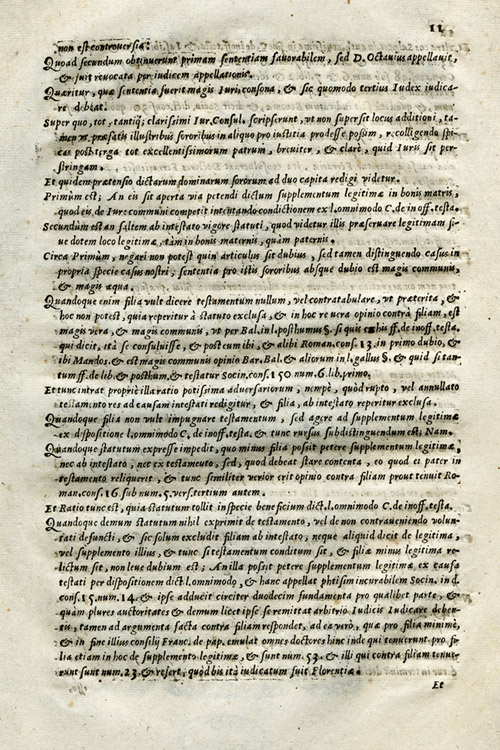 11
non est controversia:
Quod secundum obtinuerunt primam sententiam favorabilem, sed D. Octavius appellavit,
& fuit revocata per iudicem appellationis.
Quæritur, quæ sententia fuerit magis Iuri consona, & sic quomodo tertius Iudex iudica-
re debeat.
Super quo, tot, tantiq; clarissimi Iur. Consul. scripserunt, vt non supersit locus additioni, ta-
men vt præfatis illustribus sororibus in aliquo pro iustitia prodesse possim, recolligendo spi-
cas post terga tot excellentissimorum patrum, breuiter, & clarè, quid Iuris sit per-
stringam.
Et quidem prætensio dictarum dominarum sororum ad duo capita redigi videtur.
Primùm est; An eis sit aperta via petendi dictum supplementum legitimæ in bonis matris,
quod eis, de Iure communi competit intentando condictionem ex l. omnimodo C. de inoff. testa.
Secundùm est an saltem ab intestato vigore statuti, quod videtur illis præseruare legitimam si-
ue dotem loco legitimæ, tàm in bonis maternis, quàm paternis.
Circa Primùm, negari non potest quin articulus sit dubius, sed tamen distinguendo casus in
propria specie casus nostri, sententia pro istis sororibus absque dubio est magis communis,
& magis æqua.
Quandoque enim filia vult dicere testamentum nullum, vel contratabulare, vt præterita, &
hoc non potest, quia reperitur à statuto exclusa, & in hoc re vera opinio contra filiam, est
magis vera, & magis communis, vt per Bal. in l. posthumus §. si quis ff. de inoff. testa.
qui dicit, ità se consuluisse, & post eum ibi, & alibi Roman. cons. 13. in primo dubio, &
ibi Mandos. & est magis communis opinio Bar. Bal. & aliorum in l. gallus §. & quid si tan-
tum ff. de lib. & posthum. & testatur Socin. cons. 150 num. 6. lib. primo.
Et tunc intrat propriè illa ratio potissima aduersariorum, nempè, quòd rupto, vel annullato
testamento res ad causam intestati redigitur, & filia, ab intestato reperitur exclusa.
Quandoque filia non vult impugnare testamentum, sed agere ad supplementum legitimæ
ex dispositione l. omnimodo, C. de inoff. testa. & tunc rursus subdistinguendum est, Nam.
Quandoque statutum expresse impedit, quo minus filia possit petere supplementum legitimæ,
nec ab intestato, nec ex testamento, sed, quod debeat stare contenta, eo quod ei pater in
testamento reliquerit, & tunc similiter verior erit opinio contra filiam prout tenuit Ro-
man. cons. 16. sub num. 5. vers. tertium autem.
Et Ratio tunc est, quia statutum tollit in specie beneficium dict. l. omnimodo C. de inoff. testa.
Quandoque demum statutum nihil exprimit de testamento, vel de non contraueniendo volun-
tati defuncti, & sic solum excludit filiam ab intestato; neque aliquid dicit de legitima,
vel supplemento illius, & tunc si testamentum conditum sit, & filiæ minus legitima re-
lictum sit, non leue dubium est; An illa possit petere supplementum legitimæ, ex causa
testati per dispositionem dict. l. omnimodo, & hanc appellat phtisim incurabilem Socin. in d.
cons. 15. num. 14. & ipse adducit circiter duodecim fundamenta pro qualibet parte, &
quàm plures auctoritates & demum licet ipse se remittat arbitrio Iudicis Iudicare deben-
tis, tamen ad argumenta facta contra filiam respondet, ad ea verò, quæ pro filia minimè,
& in fine illius consilij Franc. de pap. emulat omnes doctores hinc inde qui tenuerunt pro fi-
lia etiam in hoc de supplemento legitimæ, & sunt num. 53. & illi qui contra filiam tenue-
runt sunt num. 23. & refert, quòd bis ità iudicatum fuit Florentiæ.
Et